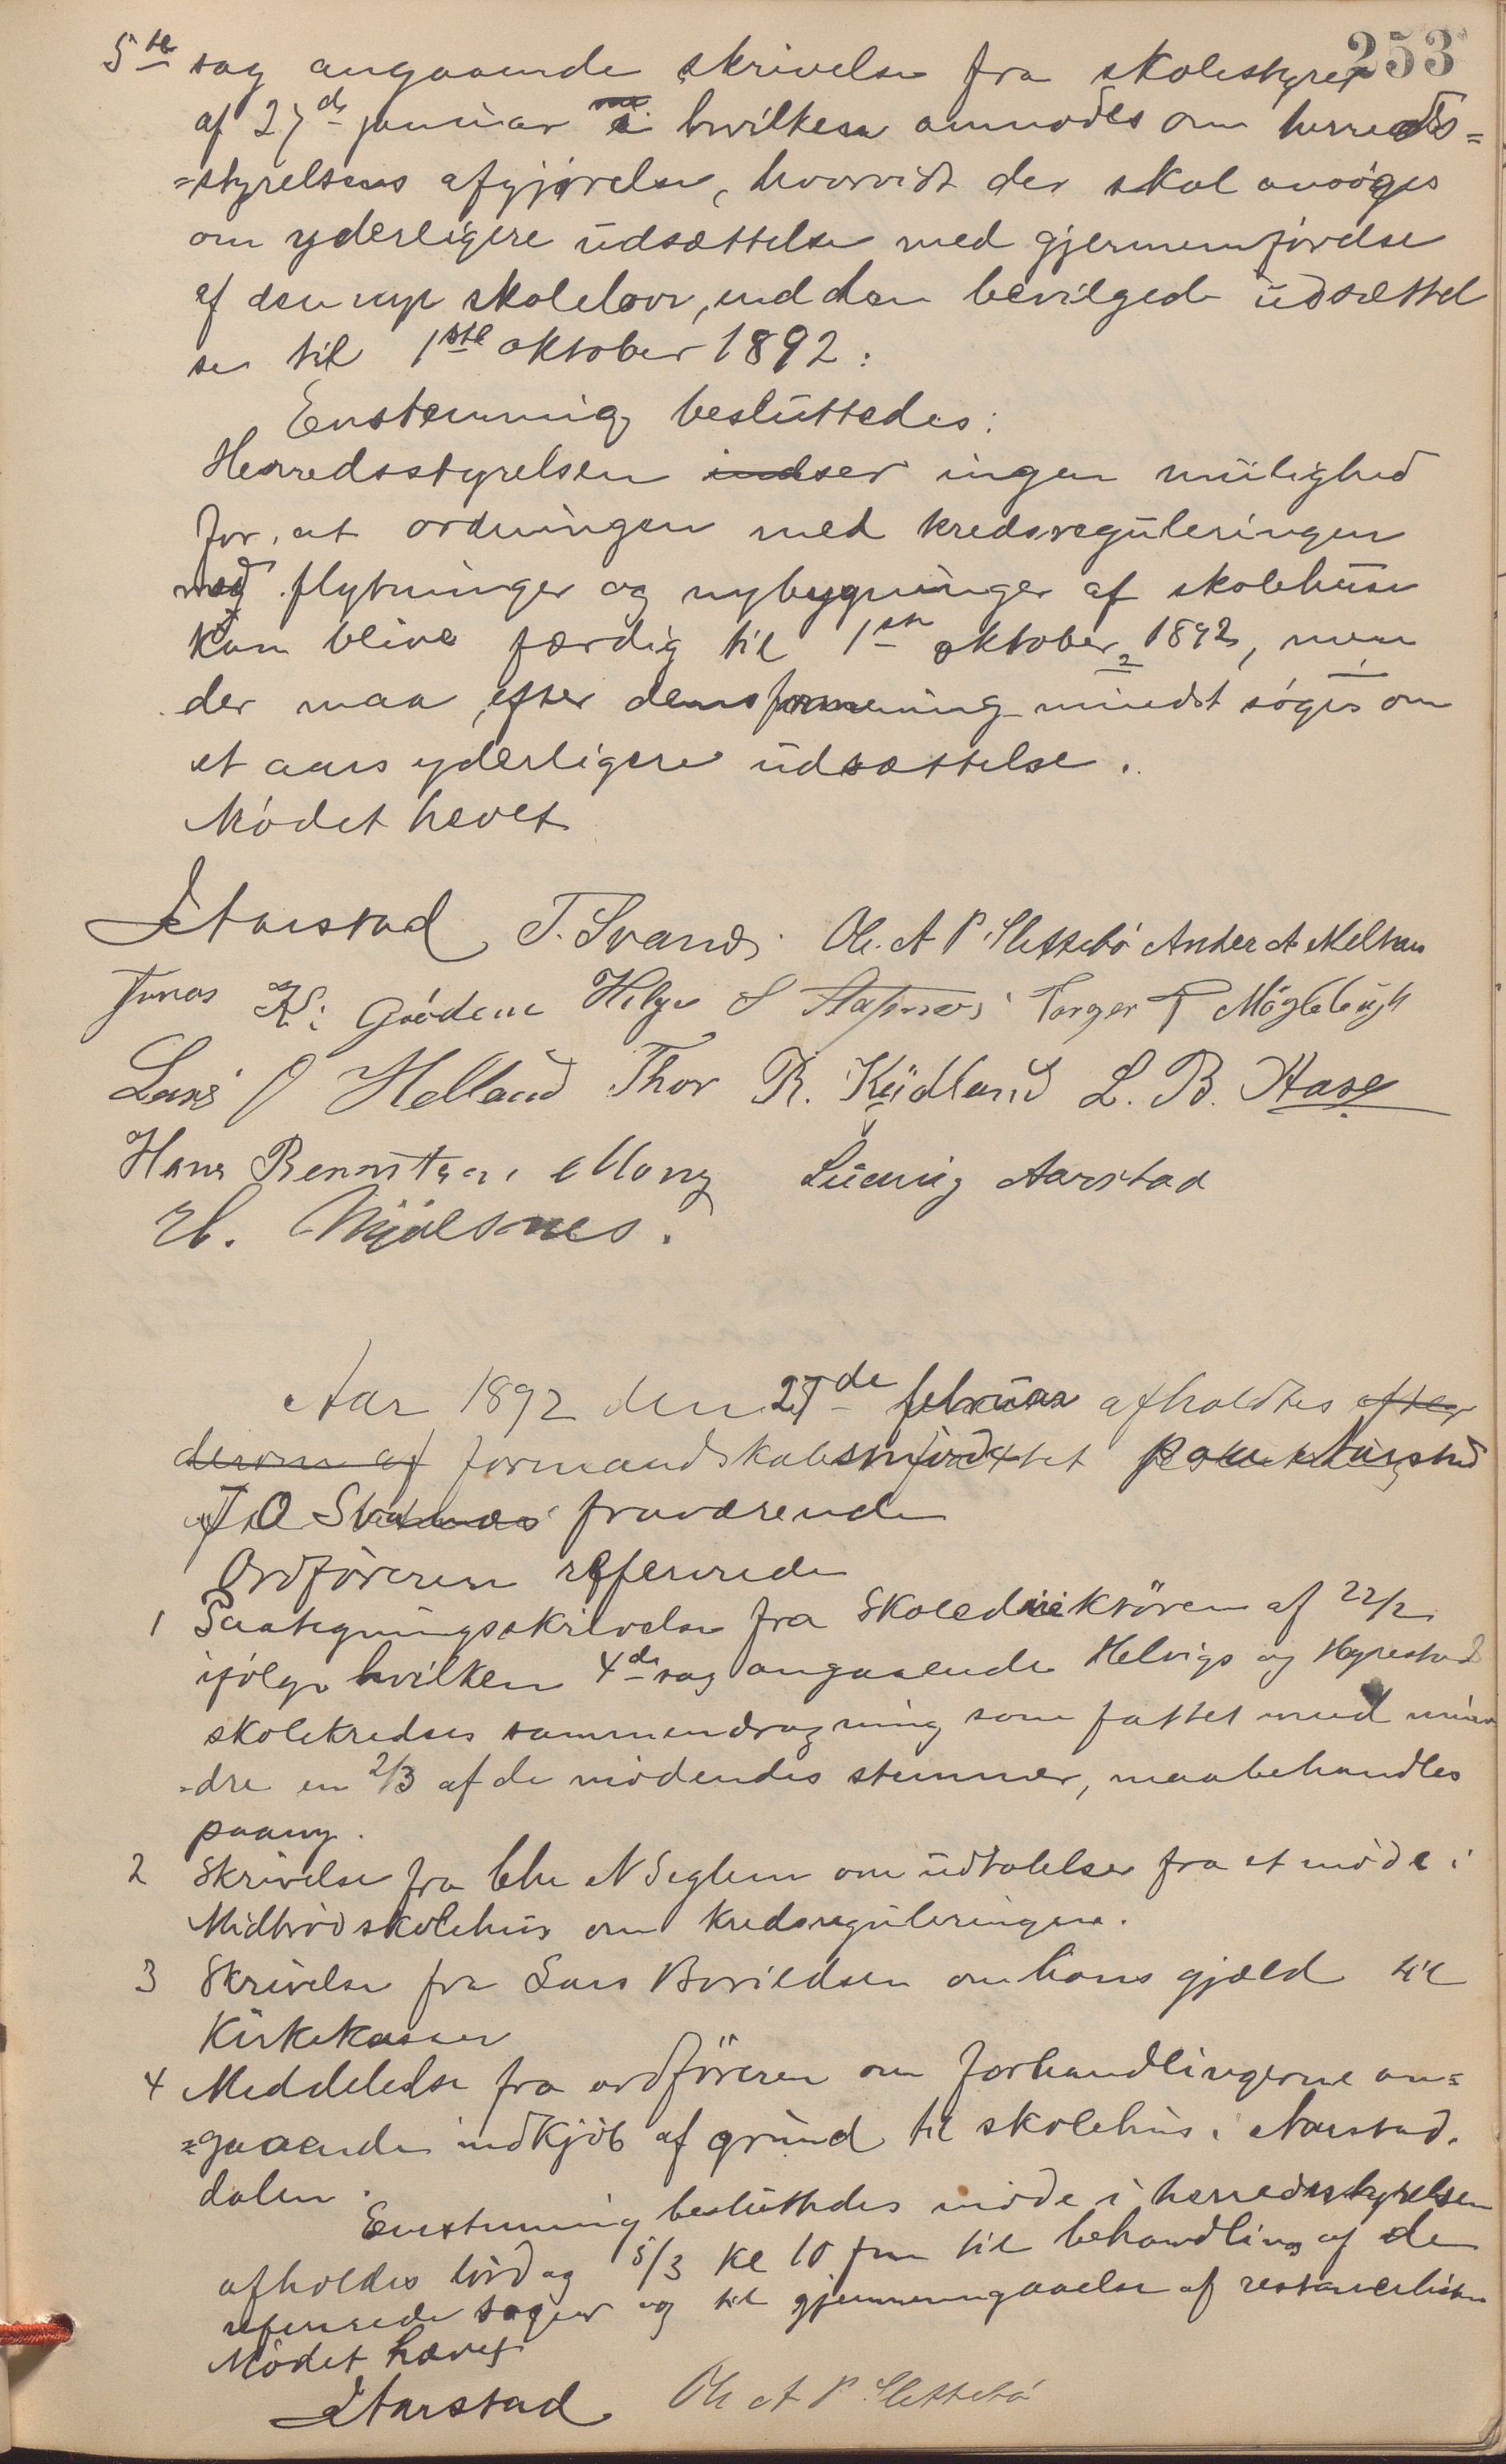 253
5te sag angaaende skrivelse fra skolestyret
af 27de januar i hvilken anmodes om herreds=
=styrelsens afgjørelse, hvorvidt der skal ansøges
om yderligere udsættelse med gjennemførelse
af den nye skolelov, end den bevilgede udsættel
se til 1ste oktober 1892:
Enstemmig besluttedes:
Herredsstyrelsen indser ingen mulighed
for, at ordningen med kredsreguleringen
med flytninger og nybygninger af skolehuse
kan blive færdig til 1ste oktober 1892, men
der maa, efter dens formening mindst søges om
et aars yderligere udsættelse.
Mødet hævet
Aarstad T. Svanes Ole A P. Slettebø Ander A Melhus
Jonas K: Gødeme Helge S Stapnes Torger T Møglebust
Lars J Helland Thor R. Kydland L. B. Hase
Hans Berentsen Mong Ludvig Aarstad
H. Mjølsnes.
Aar 1892 den 27de februar afholdtes efter
derom af formandskabsmødet
T. O Svanes fraværende
Ordføreren refererede
1 Paategningsskrivelse fra Skoledirektøren af 22/2
ifølge hvilken 4de sag angaaende Helvigs og Hyrestad
skolekredses sammendragning som fattet med min
=dre en 2/3 af de mødendes stemmer, maa behandles
paany.
2 Skrivelse fra Chr N Seglem om udtalelser fra et møde i
Midbrød skolehus om kredsreguleringen.
3 Skrivelse fra Lars Bovildsen om hans gjæld til
Kirkekassen
4 Meddelelse fra ordføreren om forhandlingerne an=
=gaaende indkjøb af grund til skolehus i Aarstad.
dalen.
Enstemmig besluttedes møde i herredsstyrelsen
afholdes lørdag 5/3 kl 10 fm til behandling af de
refererede sager og til gjennemgaaelse af restancelisten
Mødet hævet
Aarstad Ole A P Slettebø